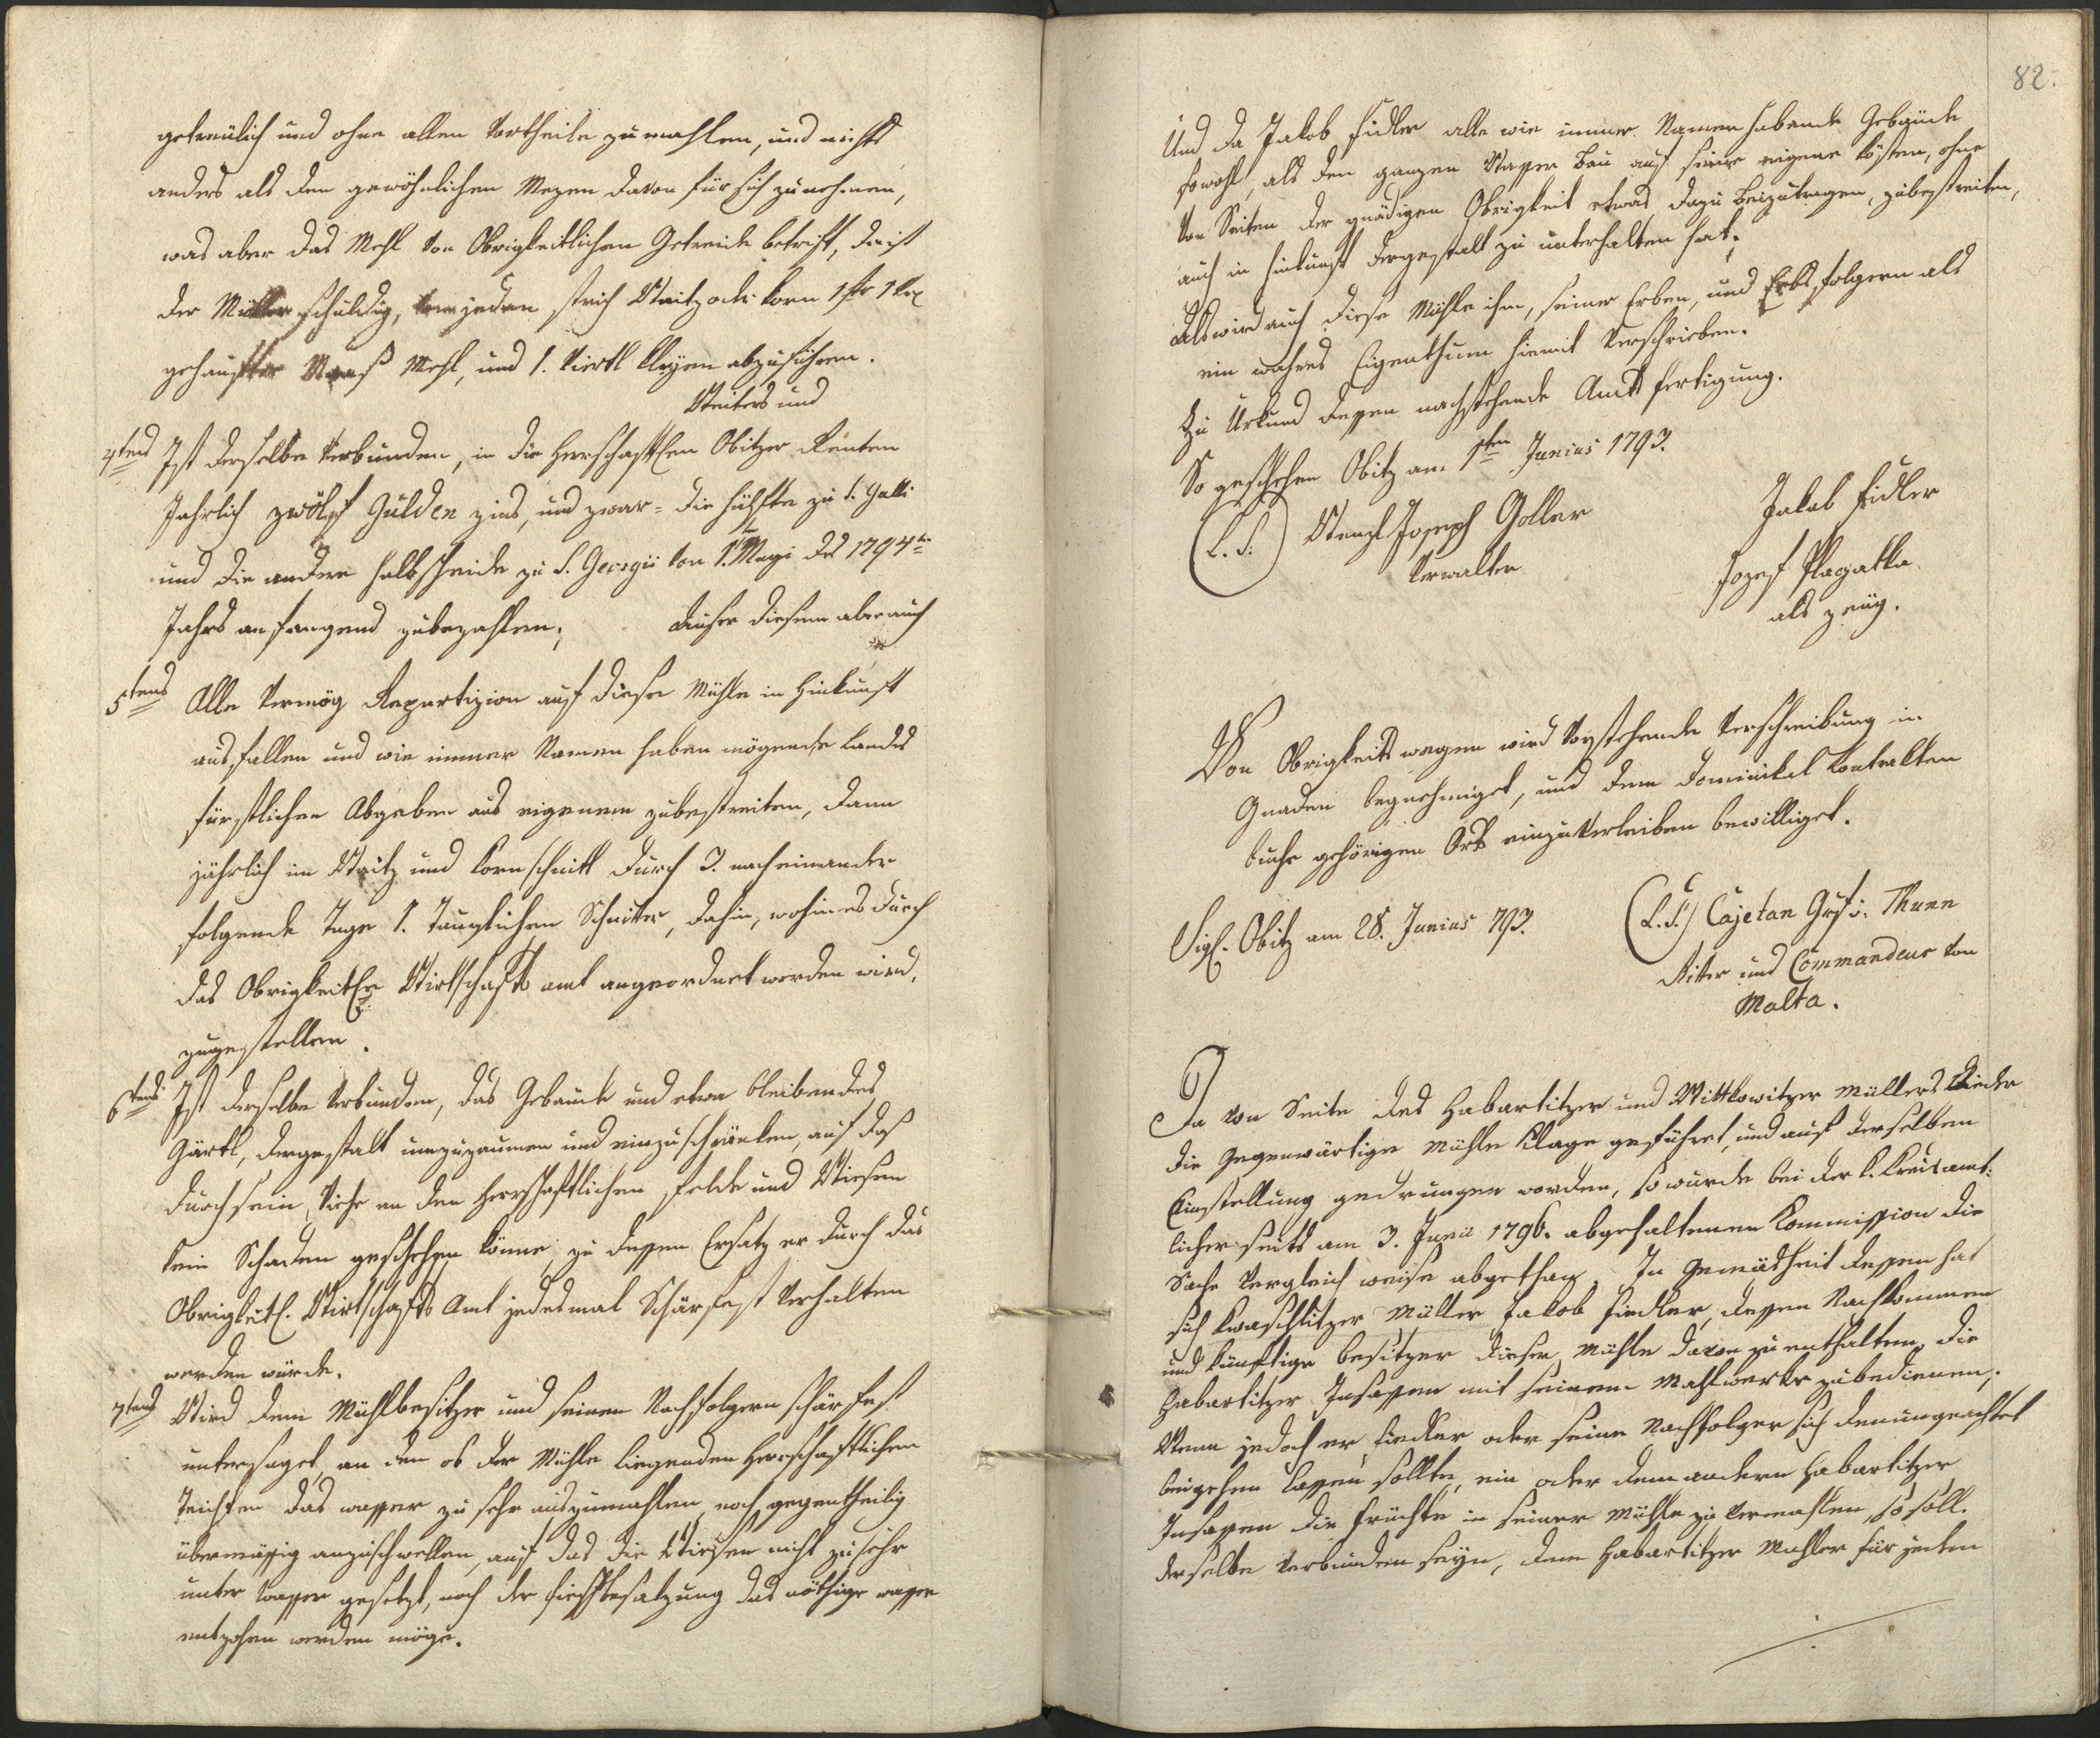 getreülich und ohne allen Vortheile zu mahlen, und nichts
anders als den gewöhnlichen Mezen davon für sich zu nehmen,
was aber das Mehl von Obrigkeitlichen Getreide betrift, da ist
der Müller schuldig, von jeden strich Waitz oder Korn
gehaufter Maaß Mehl, und 1. Viertl Kleyen abzuführen.
Weiters und
4tens Ist derselbe verbunden, in die Herrschaftlen Obitzer Renten
Jahrlich zwölf Gulden zins, und zwar = die hälfte zu S. Galli
und die andere halbscheide zu S. Georgii von 1. Mayi des 1794ten
Jahrs anfangend zubezahlen; Ausser diesem aber auch
5tens Alle vermög Repartizion auf diese Mühle in Hinkunft
ausfallen und wie immer Namen haben mögende Landes
fürstlichen Abgaben aus eigenem zubestreiten, dann
jährlich im Waitz und Kornschnitt durch 3. nacheinander
folgende Tage 1. Tauglichen Schnitter, dahin, wohin es durch
das Obrigkeitle Wirtschafts amt angeordnet werden wird,
zuzustellen.
6tens Ist derselbe verbunden, das Gebäude und etwa bleibendes
Gärtl, dergestalt umzuzaumen und einzuschränken, auf daß
durch sein Viehe an den herrschaftlichen Felde und Wiesen
kein Schaden geschehen könne, zu dessen Ersatz er durch das
Obrigkeitl. Wirtschafts Amt jedesmal Schärfest verhalten
werden würde.
7tens Wird dem Mühlbesitzer und seinen Nachfolgern schärfest
untersaget, an den ob der Mühle liegenden herrschaftlichen
Teichten das wasser zu sehr auszumahlen, noch gegentheilig
übermässig anzuschwellen, auf das die Wiesen nicht zu sehr
unter wasser gesetzt, noch der fischbesatzung das nöthige wasser
entzohen werden möge.
82.
Und da Jakob Fidler alle wie immer Namen habende Gebäude
sowohl, als den ganzen Wasser Bau auf seine eigene kösten, ohne
von Seiten der gnädigen Obrigkeit etwas dazu beizutragen, zubestreiten,
auch in hinkunft dergestalt zu unterhalten hat;
Als wird auch diese Mühle ihm, seiner Erben, und Erbsfolgern als
ein wahres Eigenthum hiemit verschrieben.
Zu Urkund dessen nachstehende Amts fertigung.
So geschehen Obitz am 1ten Junius 1793.
(L. S.) Wenzl Joseph Goller
Verwalter
Jakob Fidler
Jozef Plagatka
als zeüg.
Von Obrigkeits wegen wird vorstehende Verschreibung in
Gnaden begnehmiget, und dem Dominikal Kontrakten
buche gehörigen Orts einzuverleiben bewilliget.
Sigl. Obitz am 28. Junius 793.
(L. S.) Cajetan Grf v. Thunn
Ritter und Commandeur von
Malta.
Da von Seite des Habartitzer und Wittkowitzer Müllers wieder
die Gegenwärtige Mühle Klage geführet, und auf derselben
Einstellung gedrungen worden, so wurde bei der k. Kreisamt:
licher seits am 3. Junii 1796. abgehaltenen Kommission die
Sache Vergleich weise abgethan. In Gemäßheit dessen hat
sich Kwaschlitzer Müller Jakob Fiedler, dessen Nachkommen
und künftige besitzer dieser Mühle davon zu enthalten, die
Habartitzer Insassen mit seinem Mahlwerke zubedienen;
Wenn jedoch er Fiedler oder seine Nachfolger sich demungeachtet
beigehen lassen sollte, ein oder dem andern Habartitzer
Insassen die früchte in seiner Mühle zu vermahlen, so soll
derselbe verbunden seyn, dem Habartitzer Müller für jeden